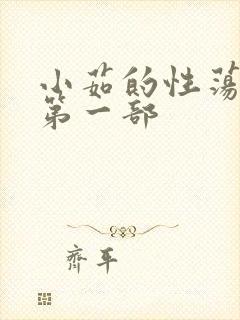 小茹的性荡
第一部
齊平